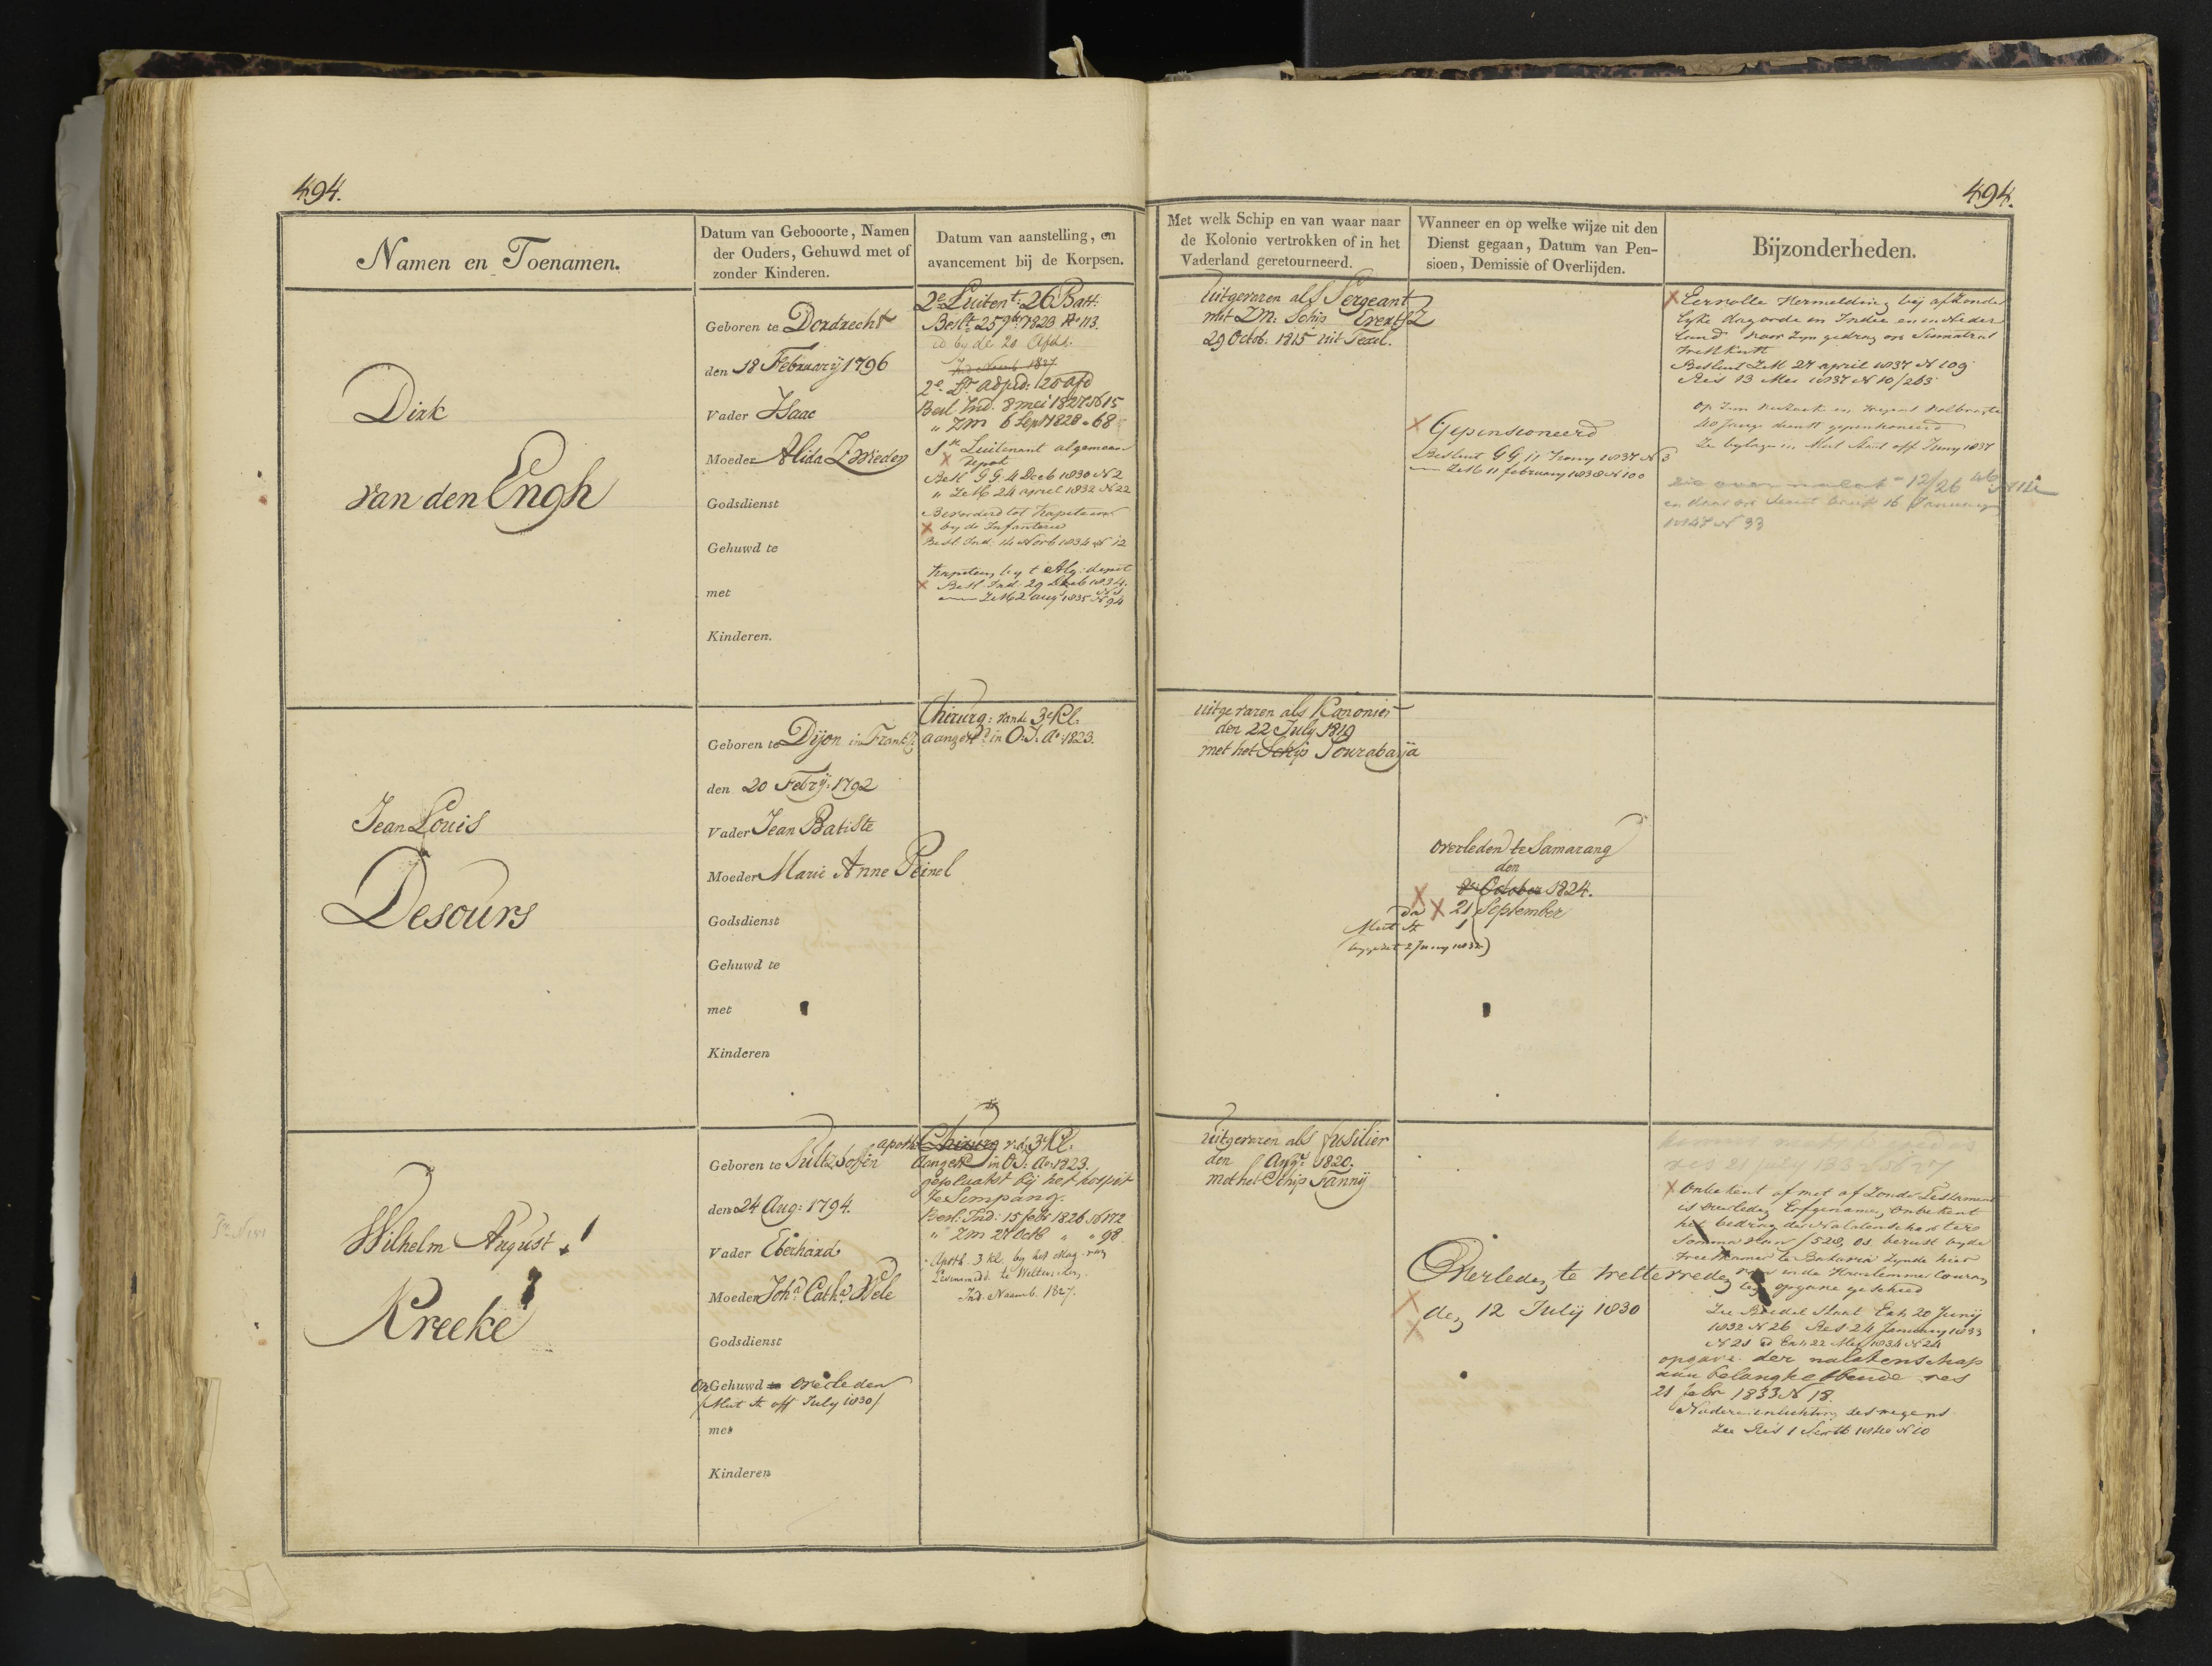 494.
494.
Namen en Toenamen.
Datum van Gebooorte, Namen
der Ouders, Gehuwd met of
zonder Kinderen.
Datum van aanstelling, en
avancement bij de Korpsen.
Met welk Schip en van waar naar
de Kolonie vertrokken of in het
Vaderland geretourneerd.
Wanneer en op welke wijze uit den
Dienst gegaan, Datum van Pen-
sioen, Demissie of Overlijden.
Bijzonderheden.
Dirk
van den Engh
Geboren te Dordrecht
den 18 February 1796
Vader Isaac
Moeder Alida
Godsdienst
Gehuwd te
met
Kinderen.
2e Luitent: 26 Batt:
Beslt 25 9ber 1823 No 113.
2e Lt adjud: 12e afd
Besl Ind. 8 mei 1827 No 15
" ZM 6 Sept 1828 " 68
1e Luitenant algemeen
X depot
Besl GG. 4 Decb 1830 N 2
" ZM 24 april 1832 N 22
Bevorderd tot Kapitein
X by de Infanterie
Besl. Ind. 14 Novb 1834 N 12
Kapitein by t Alg: depot
X Besl. Ind: 29 Decb 1834.
ZM 2 aug 1835 N 94
Uitgevaren als Sergeant
met ZM: Schip Evertsz
29 Octob. 1815 uit Texel.
X Gepensioneerd
Besluit GG 11 Juny 1837 N 3
ZM 11 february 1838 N 100
X Eervolle vermelding bij afzonder
lyke dagorde in Indie en in Neder
land voor zyn gedrag op Sumatras
Westkust
Besluit ZM 27 april 1837 N 109
Res 13 Mei 1837 N 10/263
Op Zyn verzoek en wegens volbragte
20 jarige dienst gepensioneerd
Zie bylage in Mut Staat off Juny 1837
Jean Louis
Desours
Geboren te Dijon in Frankr.
den 20 Febry: 1792
Vader Jean Batiste
Moeder Marie Anne Peinel
Godsdienst
Gehuwd te
met
Kinderen
Chirurg: van de 3e Kl.
aangestd in O.I. Ao 1823.
uitgevaren als Kanonier
den 22 July 1819
met het Schip Sourabaija
overleden te Samarang
den
October 1824.
X X 21 September
Mut St
Wilhelm August
Kreeke
Geboren te
den 24 Aug: 1794.
Vader Eberhard
Moeder Joha Catha
Godsdienst
Gehuwd overleden
/Mut St off July 1830/
met
Kinderen
apoth Chirurg v.d. 3e Kl.
Aangestd in O.I. Ao 1823.
geplaatst bij het hospit
te Simpang.
Besl: Ind: 15 febr 1826 No 172
" ZM 27 Octb " " 98.
Apoth. 3 Kl. by het Mag. van
te Weltevreden.
Ind. Naamb. 1827.
Uitgevaren als fusilier
den Augs 1820.
met het Schip Fannij
Overleden te Weltevreden
X den 12 July 1830
X
X Onbekent of met of zonder Testament
is overleden Erfgenamen onbekent
het bedrag der Nalatenschap ter
Somma van f 528,03 berust by de
Weeskamer te Batavia zynde hier
van in de Haarlemmer Courant
opgave geschied
Zie Boedel Staat Exh 20 Junij
1832 N 26 Res 24 January 1833
N 21 Exh 22 Mei 1834 N 24
opgave der nalatenschap
aan belanghebbende res
21 febr 1833 N 18.
Nadere inlichting deswegens
Zie Res 1 Septb 1840 N 10